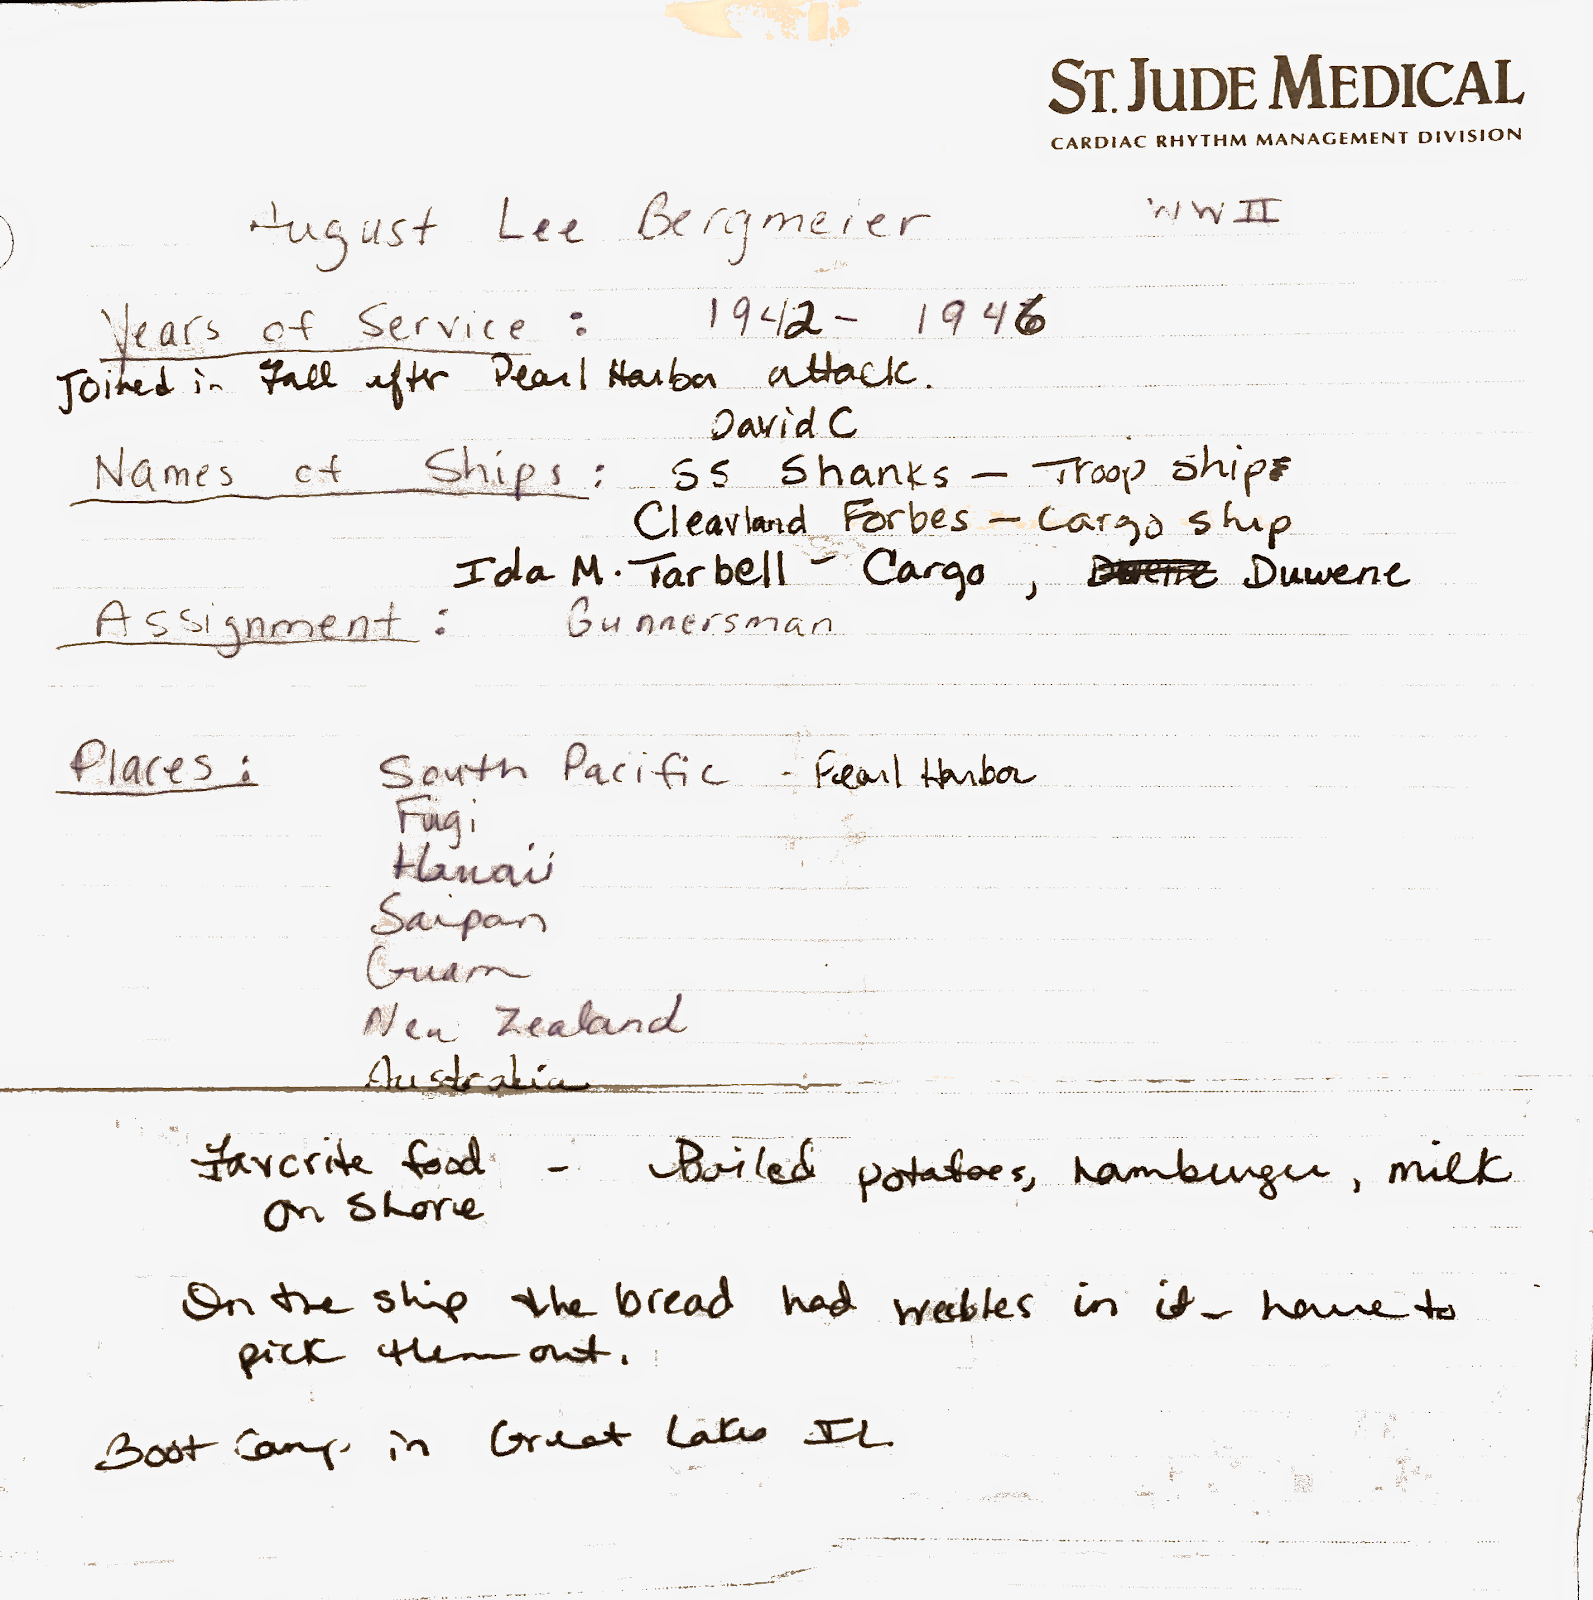 ST. JUDE MEDICAL
CARDIAC RHYTHM MANAGEMENT DIVISION
August Lee Bergmeier WWII
Years of Service : 1942 - 1946
Joined in Fall after Pearl Harbor attack.
David C
Names of Ships : SS Shanks — Troop ship
Cleavland Forbes — Cargo ship
Ida M. Tarbell - Cargo , Duwene
Assignment : Gunnersman
Places : South Pacific - Pearl Harbor
Fugi
Hawaii
Saipan
Guam
New Zealand
Australia
Favorite food - Boiled potatoes, hamburger, milk
on Shore
On the ship the bread had weebles in it - have to
pick them out.
Boot Camp in Great Lakes IL